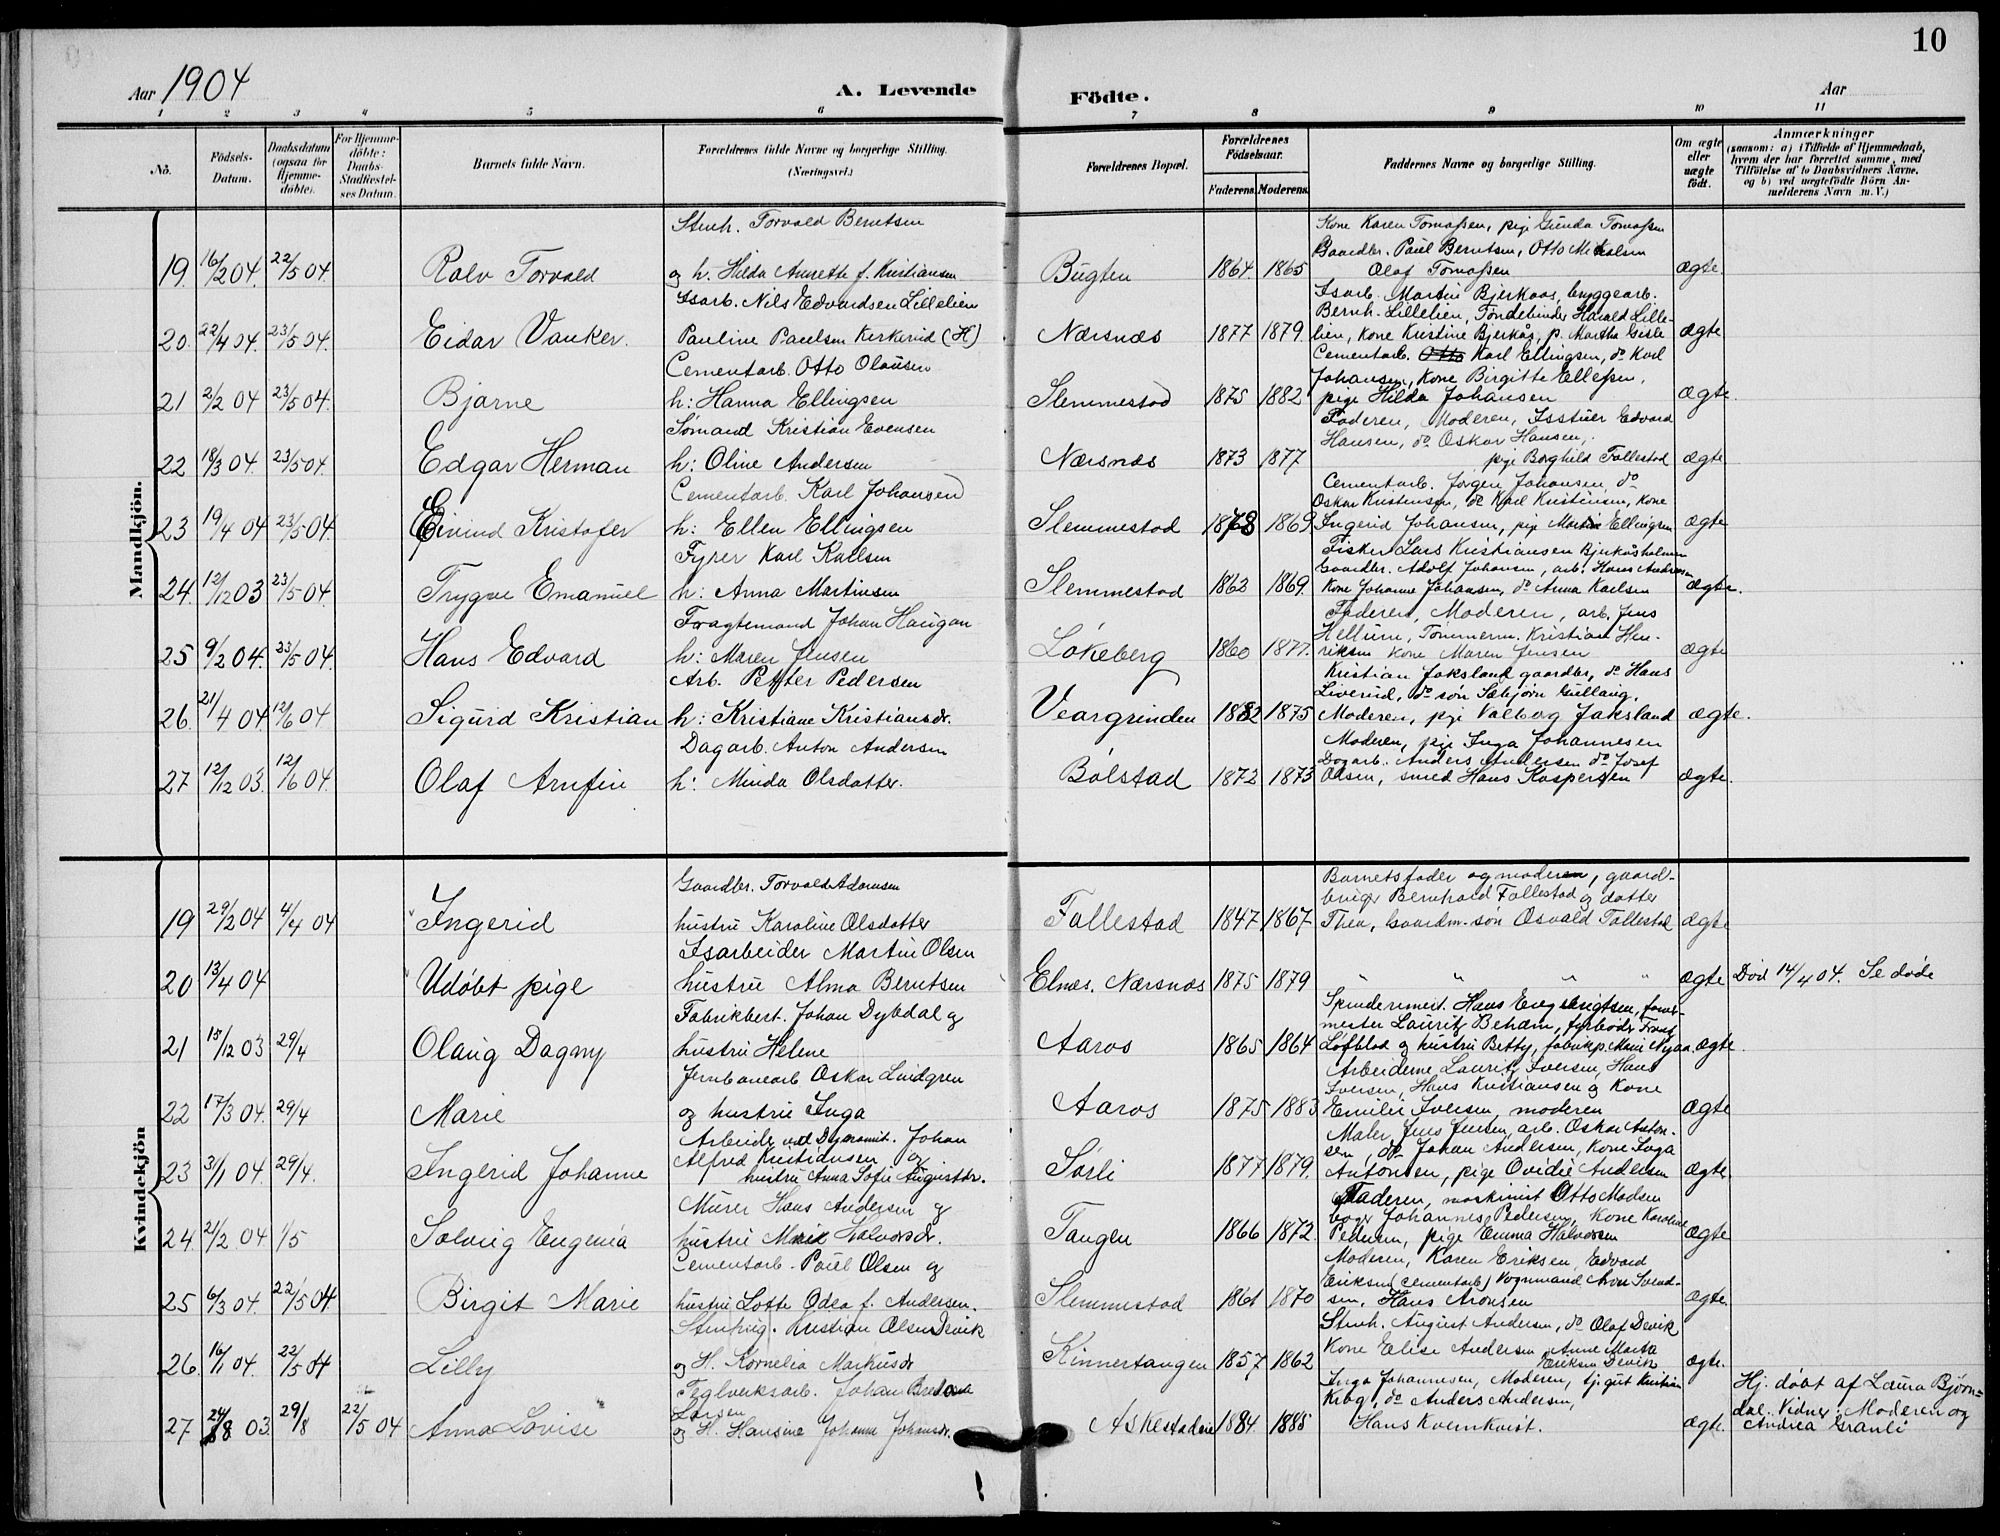 10
Aar 1904
A. Levende Födte.
Aar
1 2 3 4 5 6 7 8 9 10 11
No.
Födsels-Datum.
Daabsdatum (ogsaa for Hjemme-döbte).
For Hjemme-döbte: Daabs-Stadfæstel-ses Datum.
Barnets fulde Navn.
Forældrenes fulde Navne og borgerlige Stilling. (Næringsvei.)
Forældrenes Bopæl.
Forældrenes Födselsaar.
Faderens. Moderens.
Faddernes Navne og borgerlige Stilling.
Om ægte eller uægte födt.
Anmærkninger
(saasom: a) i Tilfælde af Hjemmedaab, hvem der har forrettet samme, med Tilföielse af to Daabsvidners Navne, og b) ved uægtefödte Börn An-melderens Navn m. V.)
Mandkjön.
Stenh. Torvald Berntsen
Kone Karen Tomassen, pige Gunda Tomassen
Gaardbr. Paul Berntsen, Otto Mikalsen
Olaf Tomassen
19. 16/2 04. 22/5 04. Rolv Torvald og h. Hilda Annette f. Kristiansen Bugten 1864. 1865 ægte.
Isarb. Nils Edvardsen Lillelien
Isarb. Martin Bjerkaas, bryggearb.
Bernh. Lillelien, Tøndebinder Harald Lille-
20. 22/4 04. 23/5 04. Eidar Vanker. Pauline Paulsen Kirkerud (H) Nærsnæs 1877 1879 lien, kone Kristine Bjerkås, p. Martha Gisle ægte
Cementarb. Otto Olausen
Cementarb. Otto Karl Ellingsen, do Karl
Johansen, kone Birgitte Ellefsen,
21 2/2 04 23/5 04. Bjarne h: Hanna Ellingsen Slemmestad 1875 1882 pige Hilda Johansen ægte.
Sømand Kristian Evensen
Faderen, Moderen, Isstuer Edvard
Hansen, do Oskar Hansen,
22 18/3 04. 23/5 04. Edgar Herman h: Oline Andersen Nærsnæs 1873 1877 pige Borghild Follestad ægte
Cementarb. Karl Johansen
Cementarb. Jørgen Johansen, do
Oskar Kristensen, do Karl Kristensen, kone
23 19/4 04 23/5 04. Eivind Kristofer h: Ellen Ellingsen Slemmestad 1878 1869 Ingerid Johansen, pige Martin Ellingsen ægte
Fyrer Karl Karlsen
Fisker Lars Kristiansen Bjerkåsholmen
Gaardbr. Adolf Johansen, arb. Hans Andersen
24. 12/12 03 23/5 04. Trygve Emanuel h: Anna Martinsen Slemmestad 1862 1869. Kone Johanne Johansen, do Anna Karlsen ægte.
Fragtemand Johan Haugan
Faderen, Moderen, arb. Jens
Hellum, Tømmerm. Kristian Hen-
25 9/2 04. 23/5 04. Hans Edvard h: Maren Jensen Løkeberg 1860 1877. riksen kone Maren Jensen ægte
Arb. Petter Pedersen
Kristian Jaksland gaardbr, do Hans
Liverud, do søn Sæbjørn Gullaug,
26. 21/4 04. 12/6 04 Sigurd Kristian h: Kristiane Kristiansdr. Veargrinden 1882 1875 Moderen, pige Valborg Jaksland ægte.
Dagarb. Anton Andersen
Moderen, pige Inga Johannesen
Dagarb. Anders Andersen do Josef
27 12/12 03. 12/6 04. Olaf Arnfin h: Minda Olsdatter. Bølstad 1872 1873 Olsen, smed Hans Kaspersen ægte.
Kvindekjön
Gaardbr. Torvald Adamsen
Barnets fader og moderen, gaard-
bruger Bernhard Follestad og datter
19 29/2 04 4/4 04 Ingerid hustru Karoline Olsdatter Follestad 1847 1867 Thea, Gaardm. søn Osvald Follestad ægte
Isarbeider Martin Olsen
20 13/4 04 Udøbt pige hustru Alma Berntsen Elnes, Nærsnæs 1875 1879 " " " " ægte Død 14/4 04. Se døde
Fabrikbest. Johan Dybdal og
Spindermest. Hans Engebrigtsen, farve-
mester Lauritz Behdm, fyrbøder Frans
21 15/12 03 29/4 Olaug Dagny hustru Helene Aaros 1865 1864 Løfblad og hustru Betty, fabrikp. Marie Nyaa. ægte.
Jernbanearb Oskar Lindgren
Arbeiderne Lauritz Iversen, Hans
Iversen, Hans Kristiansen og Kone
22 17/3 04. 29/4 Marie og hustru Inga Aaros 1875 1883 Emilie Iversen, moderen ægte
Arbeider ved Dynamit. Johan
Alfred Kristiansen og
Maler Jens Jensen, arb. Oskar Anton-
sen, do Johan Andersen, Kone Inga
23 3/1 04 29/4. Ingerid Johanne hustru Anna Sofie Augustdr. Sørli 1877 1879. Antonsen, pige Ovidie Andersen ægte
Murer Hans Andersen og
Faderen, maskinist Otto Madsen
bager Johannes Pedersen, Kone Karoline
24. 21/2 04 1/5 Solveig Eugenia hustru Marie Halvorsdr. Tangen 1866 1872 Pedersen, pige Emma Halvorsen ægte
Cementarb. Paul Olsen og
Moderen, Karen Eriksen, Edvard
Eriksen (cementarb) Vognmand Aron Svend-
25 6/3 04. 22/5 04 Birgit Marie hustru Lotte Odea f. Andersen. Slemmestad 1861 1870 sen, Hans Aronsen ægte.
Stenhug. Kristian Olsen Devik
Stenh. August Andersen, do Olaf Devik
Kone Elise Andersen Anne Marta
Eriksen Devik
26. 16/1 04. 22/5 04 Lilly og H. Kornelia Markusdr Kinnertangen 1857 1862 ægte.
Teglverksarb. Johan
Larsen
Inga Johannesen, Moderen, tj. gut Kristian
Krog, do Anders Andersen,
Hj. døbt af Laura Bjørn-
dal. Vidner: Moderen og
Andrea Granli
27 24/8 03 29/8 22/5 04 Anna Lovise og H. Hansine Johanne Johansdr. Askestadeie 1884. 1885 Hans Kvernkvist. ægte.